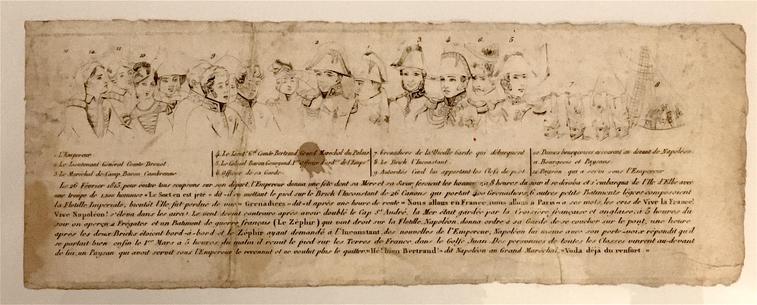 1 L'Empereur
2 Le Lieutenant Général Comte Drouot
3 Le Maréchal de Camp, Baron Cambronne
4 Le Lieut.t G.al Comte Bertrand, Grand Maréchal du Palais
5 Le Général Baron Gourgaud, 1.er Officier d'ord.ce de l'Emp.r
6 Officier de sa Garde
7 Grenadiers de la Vieille Garde qui débarquent
8 Le Brick l'Inconstant
9 Autorités apportant les Clefs de
10 Dames bourgeoises accourant au devant de Napoléon
11 Bourgeois et Paysans
12 Paysan qui a servi sous l'Empereur
Le 26 Février 1815, pour ôter tous soupçons sur son départ, l'Empereur donna une fête dont sa Mère et sa Sœur firent les honneurs à 8 heures du soir il se déroba et s'embarqua de l'Ile d'Elbe avec
une troupe de 1,100 hommes « Le Sort en est jeté » dit-il en mettant le pied sur le Brick l'Inconstant de 26 Canons qui portait 400 Grenadiers, 6 autres petits Batimens légers composaient
la Flotille Impériale, bientôt l'Ile fut perdue de vue « Grenadiers » dit-il après une heure de route « Nous allons en France, nous allons à Paris » à ces mots, les cris de Vive la France!
Vive Napoléon! s'éleva dans les airs! Le vent devint contraire après avoir doublé le Cap S.t André, la Mer était gardée par la Croisière française et anglaise, à 5 heures du
soir on aperçut 2 Frégates et un Batiment de guerre français (Le Zéphir) qui vent droit sur la Flotille, Napoléon donna ordre à sa Garde de se coucher sur le pont, une heure
après les deux Bricks étaient bord-à-bord et le Zéphir ayant demandé à l'Inconstant, des nouvelles de l'Empereur, Napoléon lui même avec son porte-voix répondit qu'il
se portait bien enfin le 1.er Mars à 5 heures du matin il remit le pied sur les Terres de France, dans le Golfe Juan. Des personnes de toutes les classes vinrent au-devant
de lui, un Paysan qui avait servit sous l'Empereur le reconnut et ne voulut plus le quitter. « Hé! bien Bertrand! » dit Napoléon au Grand Maréchal, « Voilà déjà du renfort. »